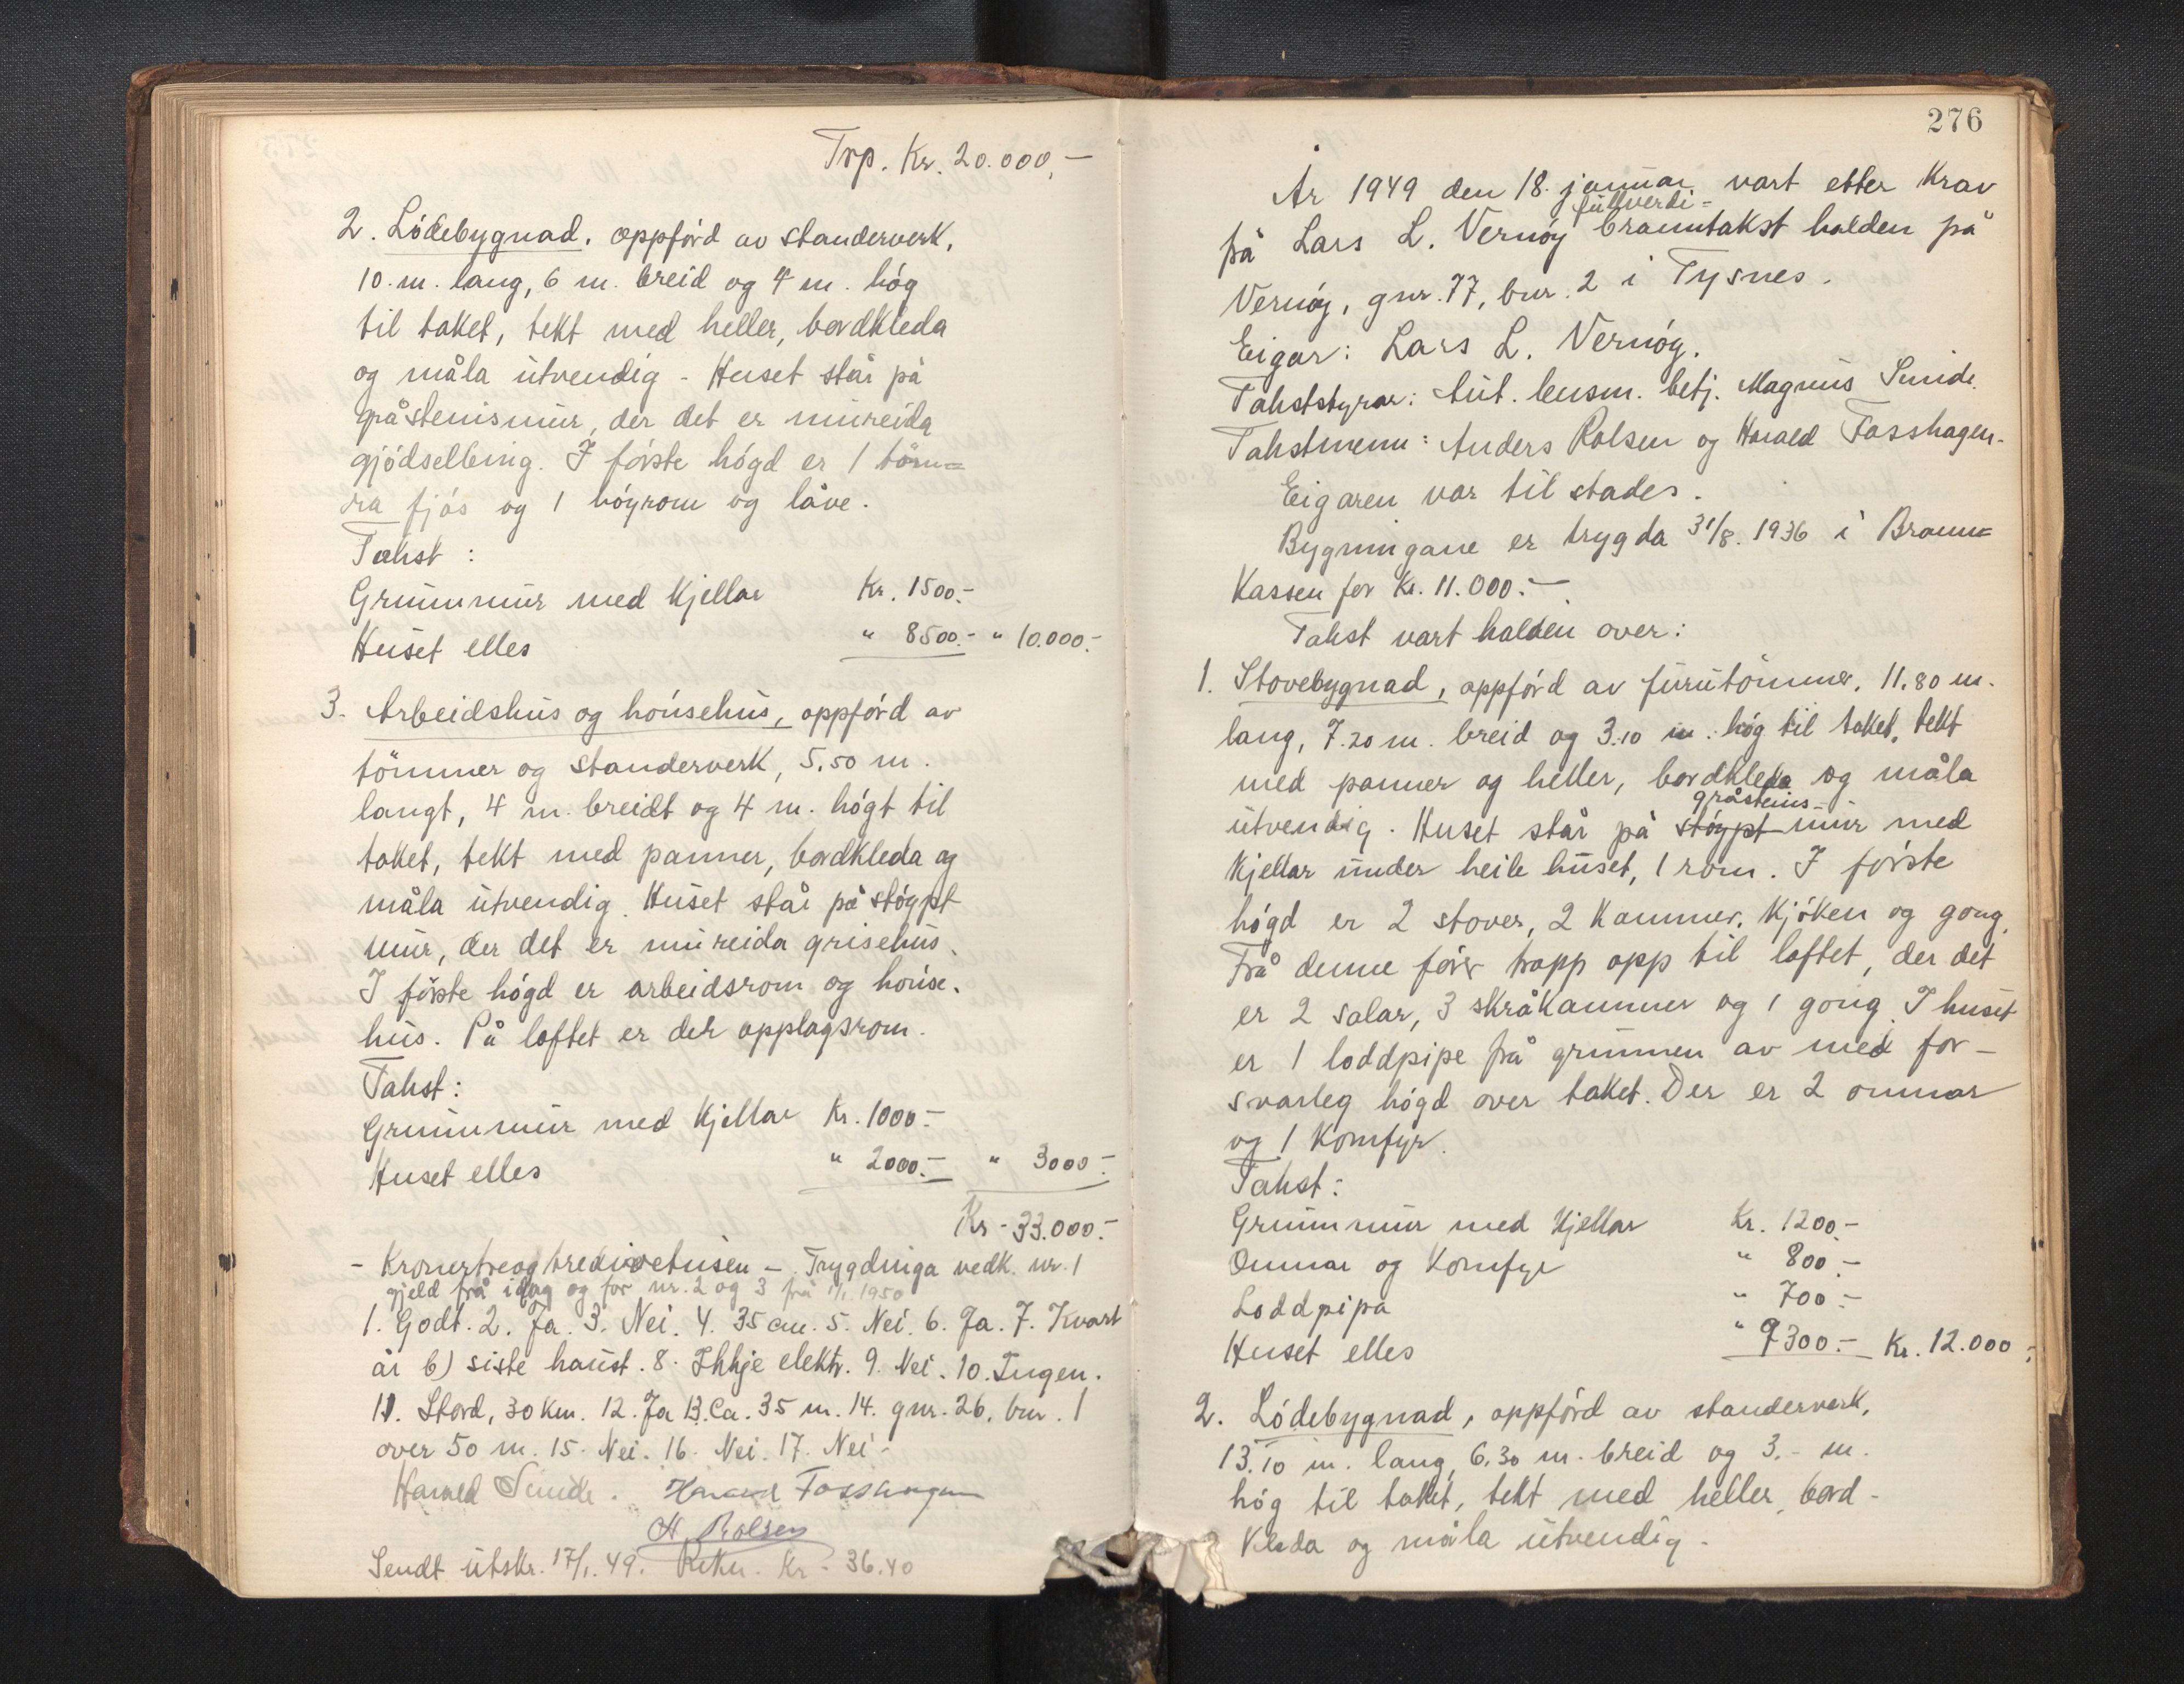 Trp. Kr. 20.000,-
2. Lödebygnad. oppförd av standerverk,
10. m. lang, 6 m. breid og 4 m. hög
til taket, tekt med heller, bordkleda
og måla utvendig - Huset står på
gråsteinsmur, der det er mureida
gjödselbing. I förste högd er 1 töm=
ra fjös og 1 höyrom og låve.
Takst :
Grunnmur med Kjellar Kr. 1500.-
Huset elles " 8500.- " 10.000.-
3. Arbeidshus og hönsehus, oppförd av
tömmer og standerverk, 5.50 m.
langt, 4 m. breidt og 4 m. högt til
taket, tekt med panner, bordkleda og
måla utvendig. Huset står på stöypt
mur, der det er mureida grisehus.
I förste högd er arbeidsrom og hönse-
hus. På loftet er det opplagsrom.
Takst:
Grunnmur med Kjellar Kr. 1000.-
Huset elles " 2000.- " 3000.-
Kr. 33.000.-
- Kronertreogtredivetusen - Trygdinga vedk. nr. 1
gjeld frå idag og for nr. 2 og 3 frå 1/1. 1950
1. Godt. 2. Ja. 3. Nei. 4. 35 cm. 5. Nei. 6. Ja. 7. Kvart
år b) siste haust. 8. Ikkje elektr. 9. Nei. 10. Ingen.
11. Stord, 30 km. 12. Ja 13. Ca. 35 m. 14. gnr. 26, bnr. 1
over 50 m. 15. Nei. 16. Nei. 17. Nei.
Sunde. Harald Fosshagen
A. Rolsen
Sendt utskr. 17/1. 49. Rekn. Kr. 36.40
276
År 1949 den 18. januar vart etter Krav
fullverdi=
frå Lars L. Vernöy branntakst halden på
Vernöy, gnr. 77, bnr. 2 i Tysnes.
Eigar: Lars L. Vernöy.
Takststyrar: Aut. lensm. betj. Magnus Sunde.
Takstmenn: Anders Rolsen og Harald Fosshagen.
Eigaren var til stades.
Bygningane er trygda 31/8. 1936 i Brann=
Kassen for Kr. 11.000.-
Takst vart halden over:
1. Stovebygnad, oppförd av furutömmer, 11.80 m.
lang, 7.20 m. breid og 3.10 m. hög til taket, tekt
med panner og heller, bordkleda og måla
gråsteins-
utvendig. Huset står på stöypt mur med
Kjellar under heile huset, 1 rom. I förste
högd er 2 stover, 2 Kammer, Kjöken og gong.
Frå denne förer trapp opp til loftet, der det
er 2 salar, 3 skråkammer og 1 gong. I huset
er 1 loddpipe frå grunnen av med for-
svarleg högd over taket. Der er 2 omnar
og 1 Komfyr.
Takst:
Grunnmur med Kjellar Kr. 1200.-
Omnar og Komfyr " 800.-
Loddpipa " 700.-
Huset elles " 9300.- Kr. 12.000.-
2. Lödebygnad, oppförd av standerverk,
13.10 m. lang, 6.30 m. breid og 3.- m.
hög til taket, tekt med heller, bord-
Kleda og måla utvendig.